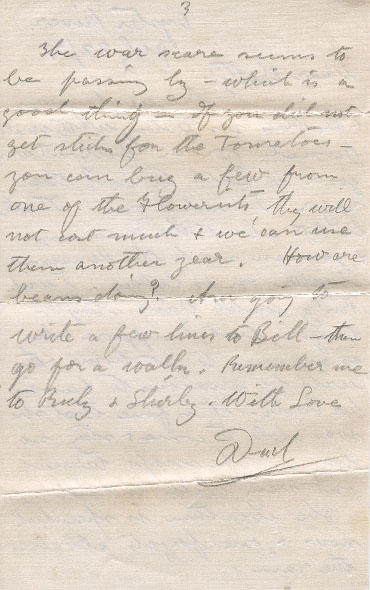 3
The war scare seems to
be passing by - which is a
good thing - If you did not
get sticks for the Tomatoes -
you can buy a few from
one of the Flowerists, they will
not cost much & we can use
them another year. How are
beans doing? Am going to
write a few lines to Bill - then
go for a walk. Remember me
to Ruby & Shirley. With Love